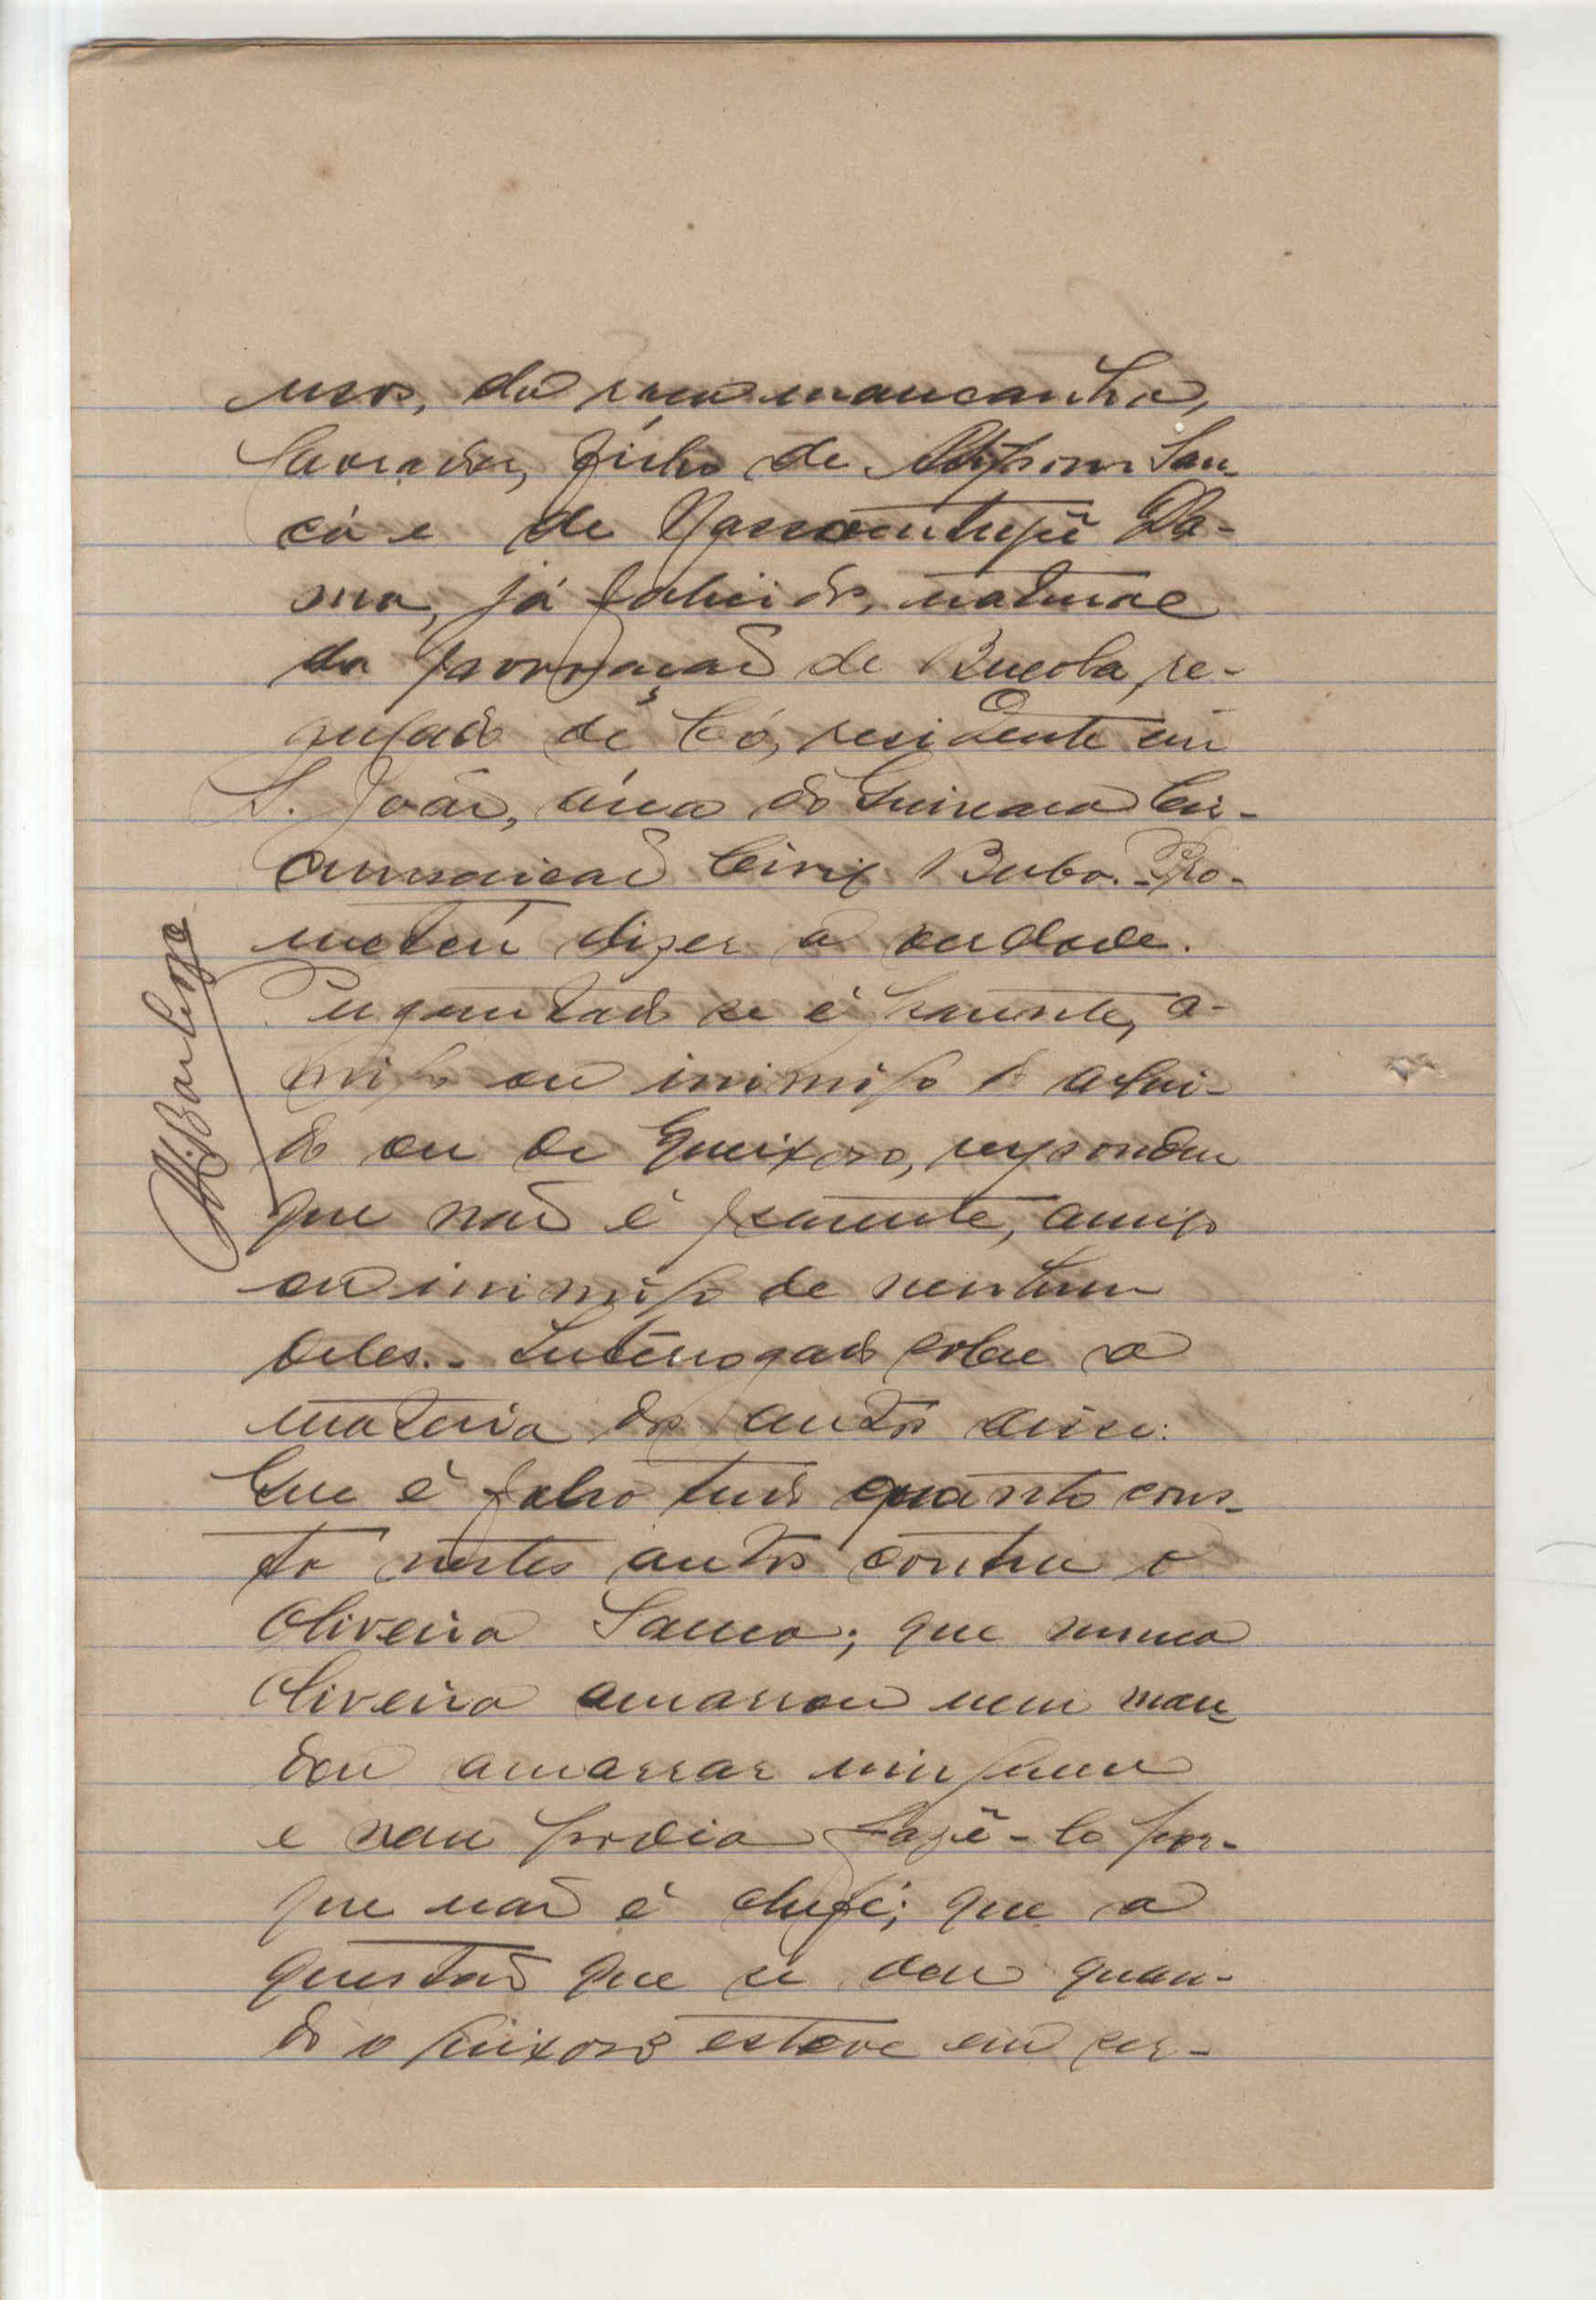 usos, da raça mancanha,
lavrador, filho de San-
cá e de Da-
ma, já falecidos, natural
da povoação de Bucola, re-
gulado de Có, residente em
S. João, área do Cir-
cunscricão Civil Bubo. - Pro-
meteu dizer a verdade.
Perguntado se é parente, a-
migo ou inimigo do argui-
do ou do queixoso, respondeu
que não é parente, amigo
ou inimigo de nenhum
deles. - Interrogado sobre a
materia dos autos disse:
Que é falso tudo quanto cons-
ta nestes autos contra o
Oliveira Sanca; que nunca
Oliveira amarrou nem man-
dou amarrar ninguem
e nem podia fazê-lo por-
que não é chefe; que a
questão que se deu quan-
do o queixoso esteve em ser-